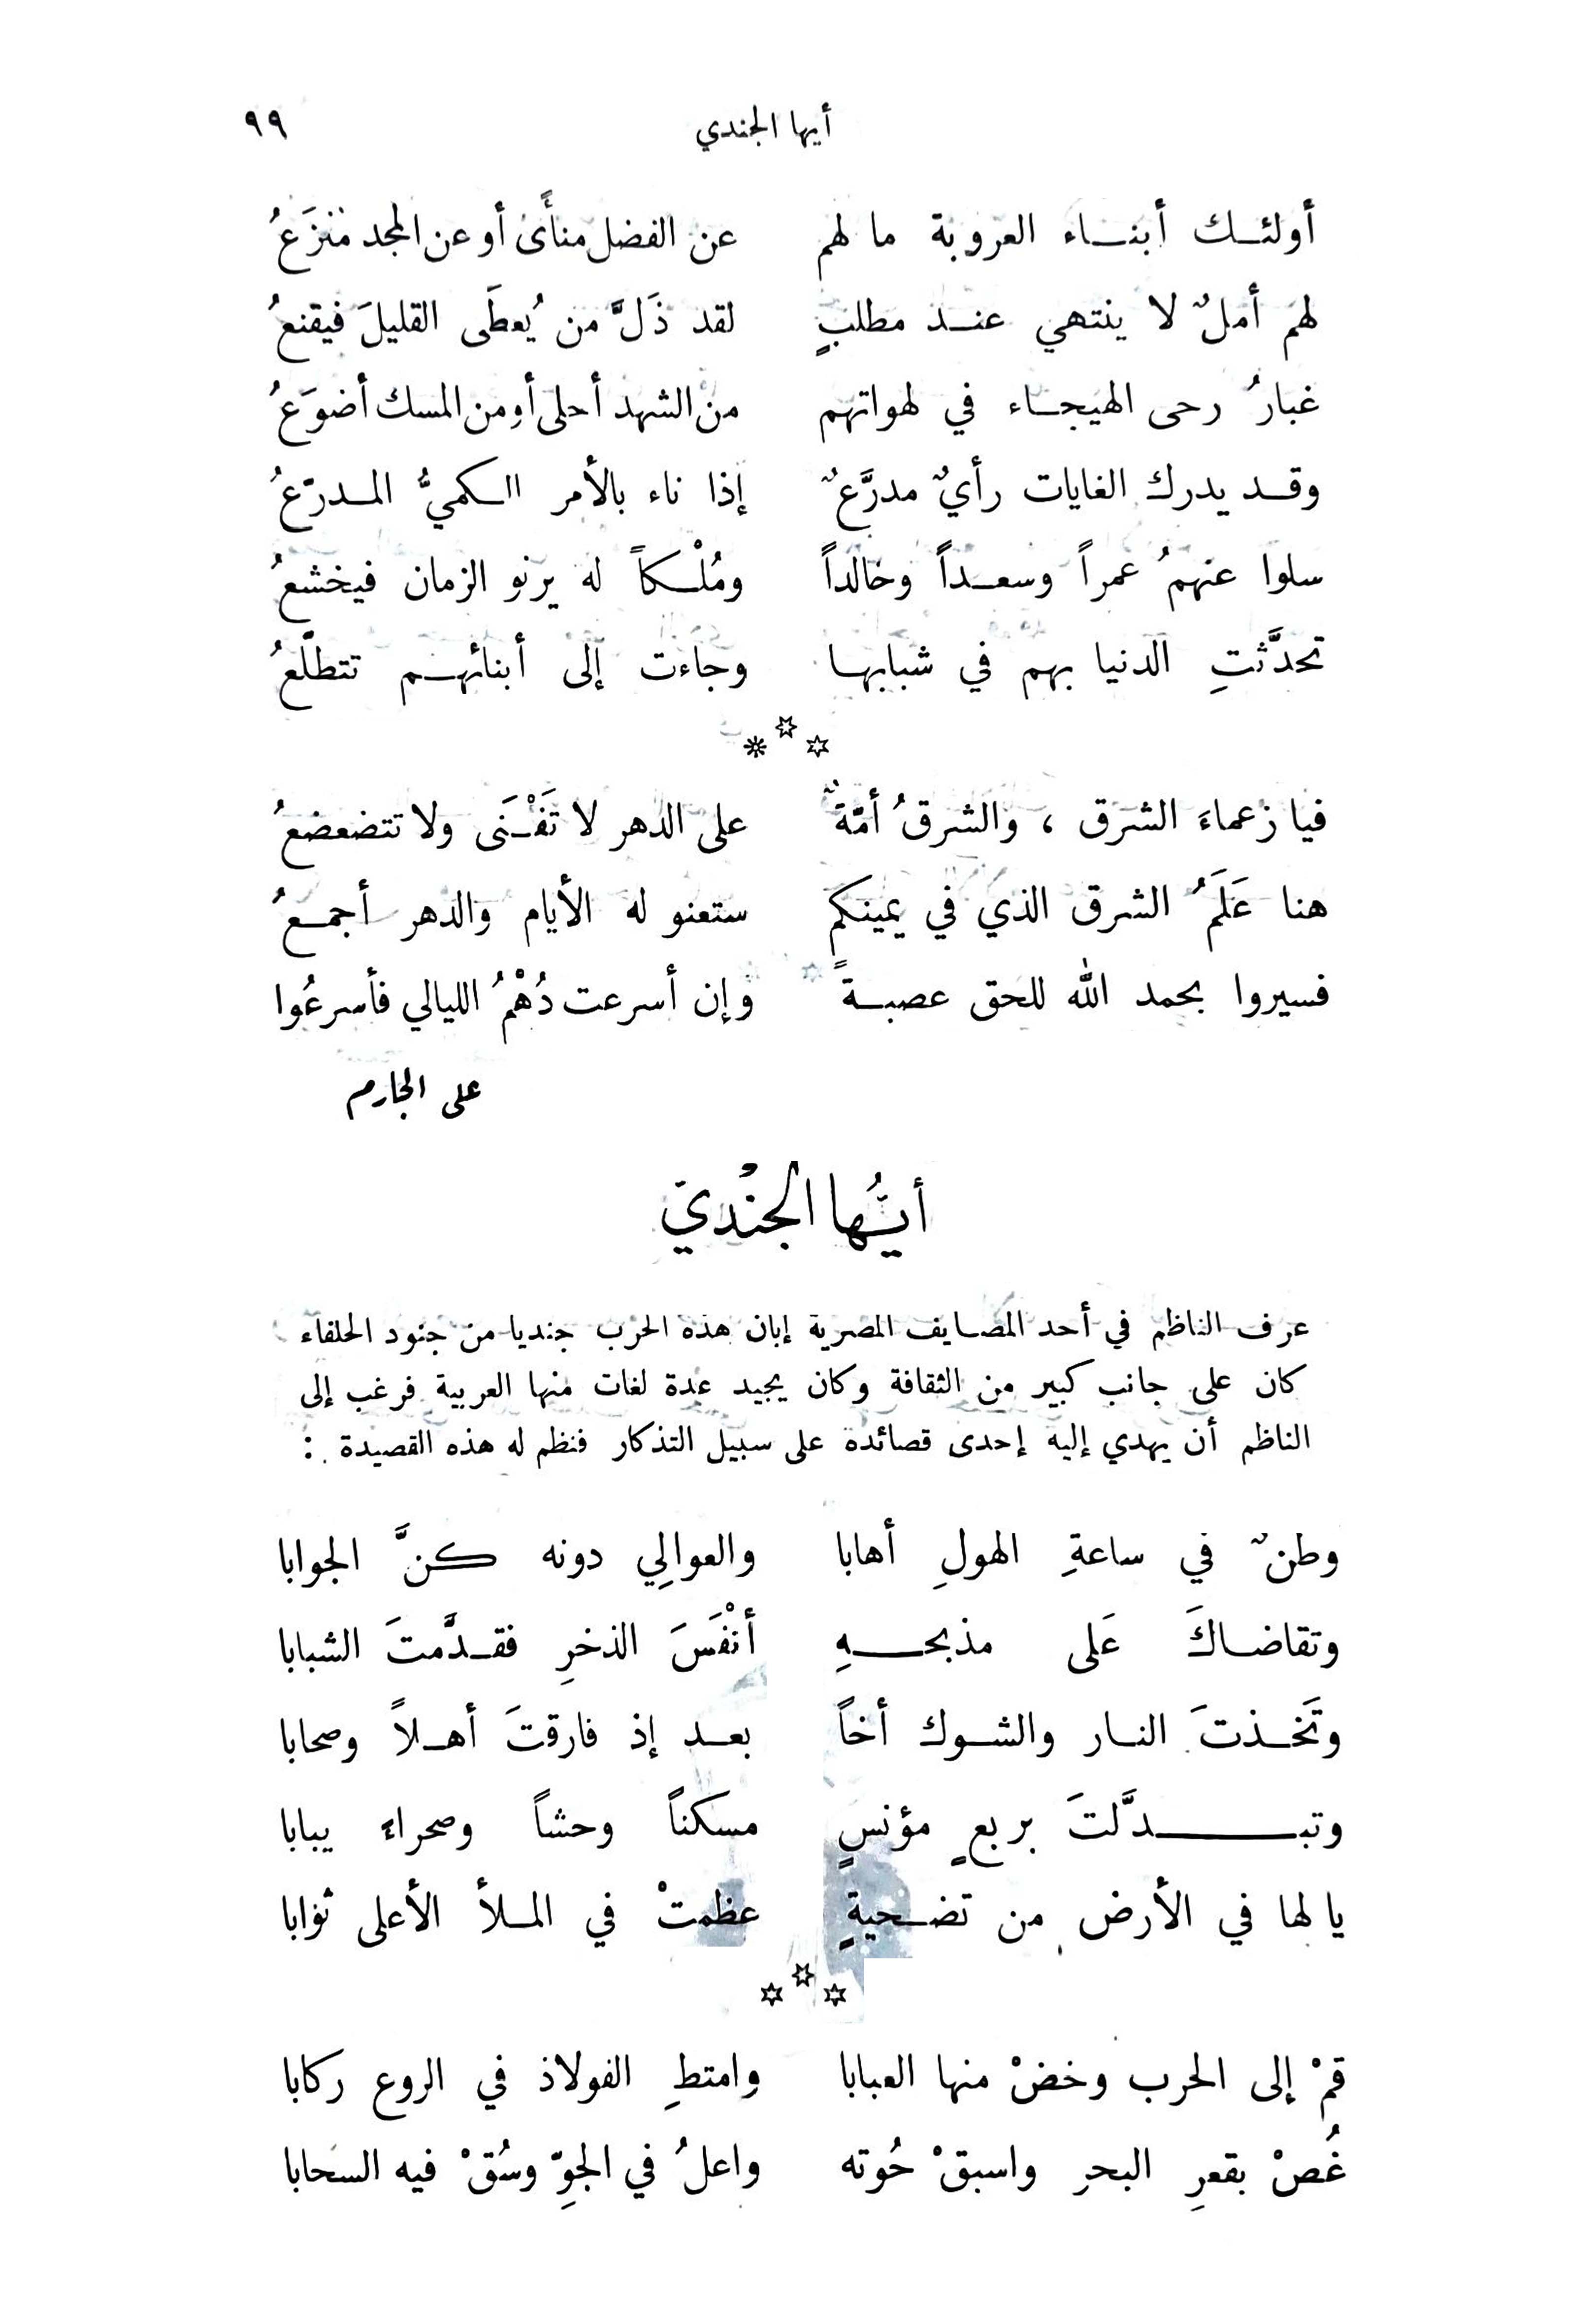 أيها الجندي ٩٩
أولئك أبناء العروبة ما لهم عن الفضل منأًى أو عن المجد منزَعُ
لهم أملٌ لا ينتهي عند مطلبٍ لقد ذَلَّ من يُعطَى القليلَ فيقنعُ
غبارُ رحى الهيجاء في لهواتهم من الشهد أحلى أو من المسك أضوَعُ
وقد يدرك الغايات رأيٌ مدرَّعٌ إذا ناء بالأمر الكميُّ المدرّعُ
سلوا عنهمُ عمراً وسعداً وخالداً ومُلْكاً له يرنو الزمان فيخشعُ
تحدَّثتِ الدنيا بهم في شبابها وجاءت إلى أبنائهم تتطلّعُ
***
فيا زعماءَ الشرق ، والشرقُ أمّةٌ على الدهر لا تَفْنَى ولا تتضعضعُ
هنا عَلَمُ الشرق الذي في يمينكم ستعنو له الأيام والدهر أجمعُ
فسيروا بحمد الله للحق عصبةً وإن أسرعت دُهْمُ الليالي فأسرعُوا
على الجارم
أيُّها الجُنْديّ
عرف الناظم في أحد المصايف المصرية إبان هذه الحرب جنديا من جنود الحلفاء
كان على جانب كبير من الثقافة وكان يجيد عدة لغات منها العربية فرغب إلى
الناظم أن يهدي إليه إحدى قصائده على سبيل التذكار فنظم له هذه القصيدة :
وطنٌ في ساعةِ الهولِ أهابا والعوالِي دونه كنَّ الجوابا
وتقاضاكَ عَلى مذبحهِ أنْفَسَ الذخرِ فقدَّمتَ الشبابا
وتَخذتَ النار والشوك أخاً بعد إذ فارقتَ أهلاً وصحابا
وتبدَّلتَ بربعٍ مؤنسٍ مسكناً وحشاً وصحراء يبابا
يا لها في الأرض من تضحيةٍ عظمتْ في الملأ الأعلى ثوابا
***
قمْ إلى الحرب وخضْ منها العبابا وامتطِ الفولاذ في الروع ركابا
غُصْ بقعرِ البحر واسبقْ حُوته واعلُ في الجوِّ وسُقْ فيه السحابا